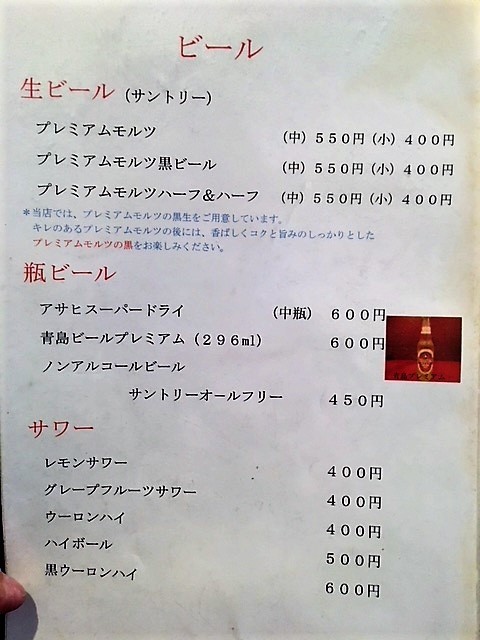 ビール
生ビール (サントリー)
プレミアムモルツ (中) 550円 (小) 400円
プレミアムモルツ黒ビール (中) 550円 (小) 400円
プレミアムモルツハーフ＆ハーフ (中) 550円 (小) 400円
＊当店では、プレミアムモルツの黒生をご用意しています。
キレのあるプレミアムモルツの後には、香ばしくコクと旨みのしっかりとした
プレミアムモルツの黒をお楽しみください。
瓶ビール
アサヒスーパードライ (中瓶) 600円
青島ビールプレミアム (296ml) 600円
ノンアルコールビール
サントリーオールフリー 450円
サワー
レモンサワー 400円
グレープフルーツサワー 400円
ウーロンハイ 400円
ハイボール 500円
黒ウーロンハイ 600円